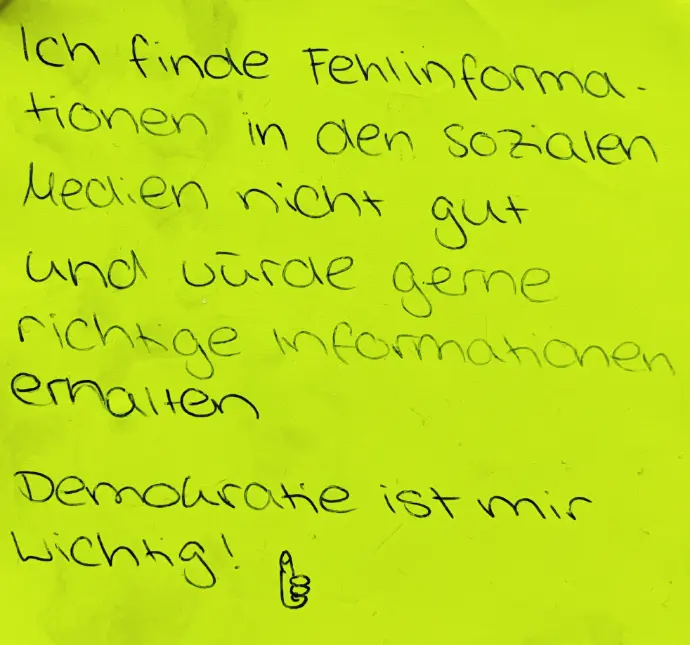 Ich finde Fehlinforma-
tionen in den sozialen
Medien nicht gut
und würde gerne
richtige Informationen
erhalten
Demokratie ist mir
wichtig!